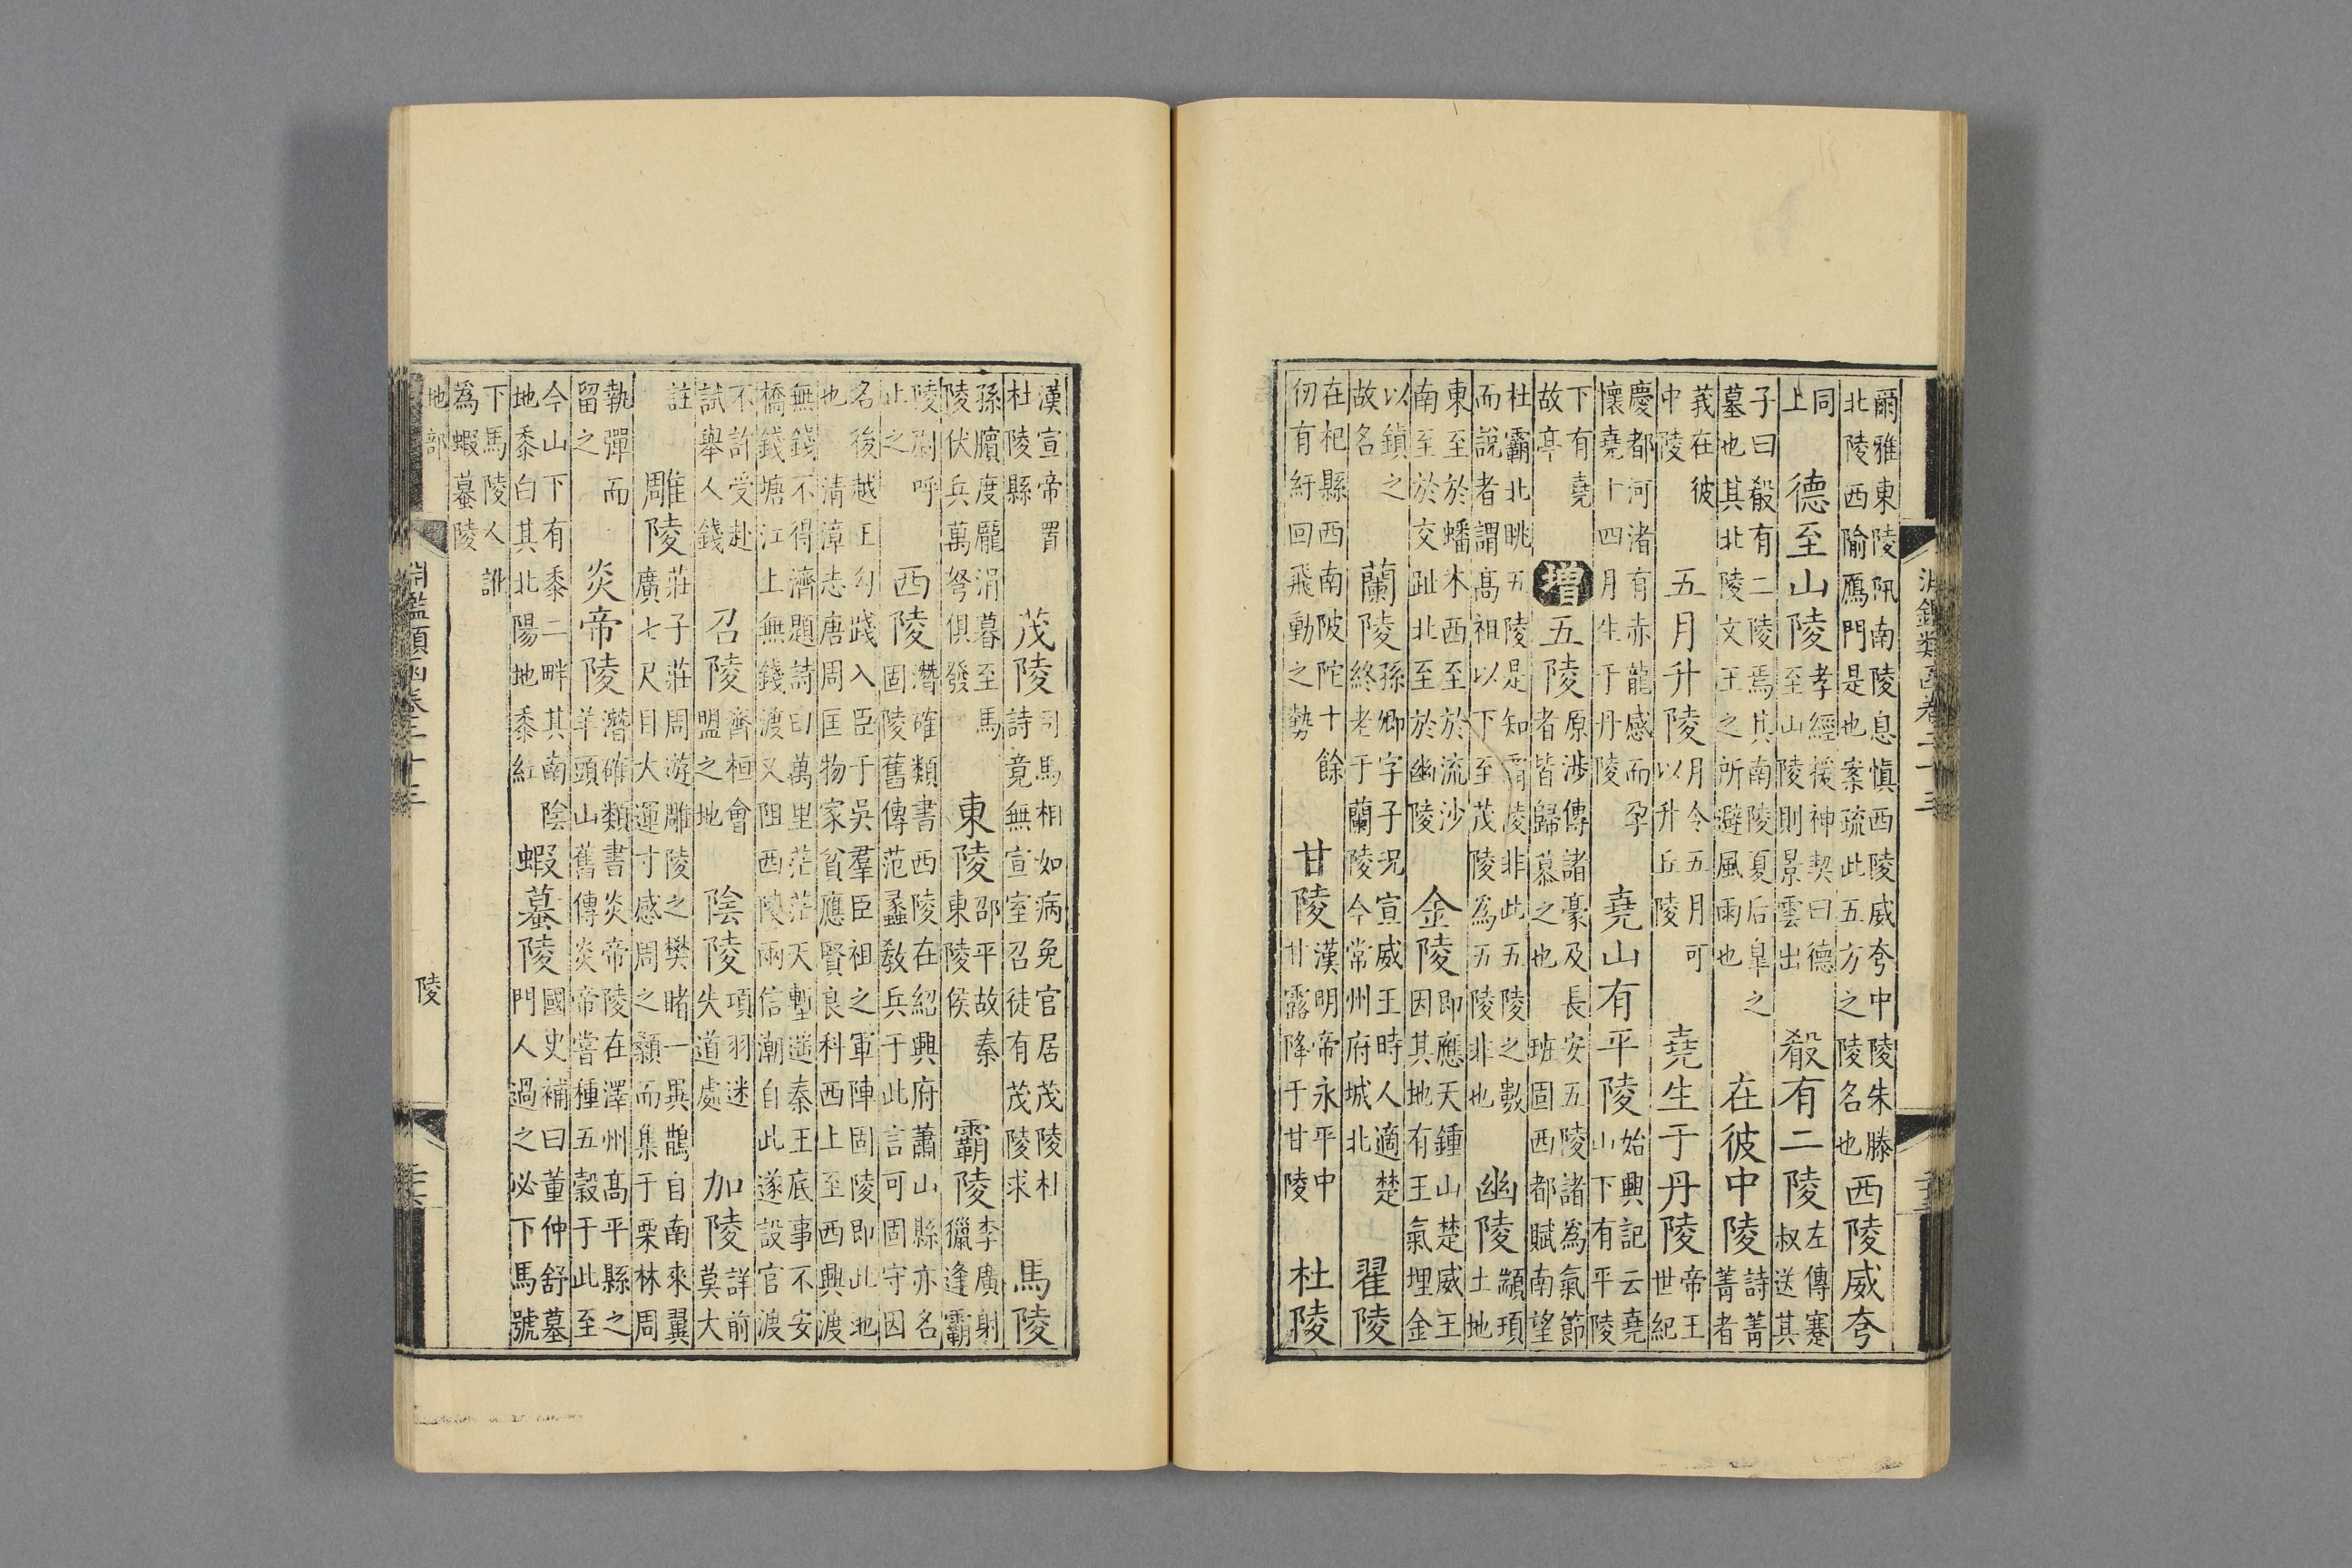 淵鑑類函卷二十三
爾雅東陵阠南陵息慎西陵威夸中陵朱滕
北陵西隃鴈門是也案疏此五方之陵名也
西陵威夸
同
上
德至山陵
孝經援神契曰德
至山陵則景雲出
殽有二陵
左傳蹇
叔送其
子曰殽有二陵焉其南陵夏后皐之
墓也其北陵文王之所避風雨也
在彼中陵
詩菁
菁者
莪在彼
中陵
五月升陵
月令五月可
以升丘陵
堯生于丹陵
帝王
世紀
慶都河渚有赤龍感而孕
懷堯十四月生于丹陵
堯山有平陵
始興記云堯
山下有平陵
下有堯
故亭
增
五陵
原涉傳諸豪及長安五陵諸為氣節
者皆歸慕之也 班固西都賦南望
杜霸北眺五陵是知霸陵非此五陵之數
而說者謂髙祖以下至茂陵為五陵非也
幽陵
顓頊
土地
東至於蟠木西至於流沙
南至於交趾北至於幽陵
金陵
即應天鍾山楚威王
因其地有王氣埋金
以鎮之
故名
蘭陵
孫卿字子况宣威王時人適楚
終老于蘭陵今常州府城北
翟陵
在杞縣西南陂陀十餘
仞有紆回飛動之勢
甘陵
漢明帝永平中
甘露降于甘陵
杜陵
漢宣帝置
杜陵縣
茂陵
司馬相如病免官居茂陵杜
詩竟無宣室召徒有茂陵求
馬陵
孫臏度龎涓暮至馬
陵伏兵萬弩俱發
東陵
邵平故秦
東陵侯
霸陵
李廣射
獵逢霸
陵尉呼
止之
西陵
潛確類書西陵在紹興府蕭山縣亦名
固陵舊傳范蠡敎兵于此言可固守因
名後越王勾踐入臣于吳羣臣祖之軍陣固陵即此地
也 清漳志唐周匡物家貧應賢良科西上至西興渡
無錢不得濟題詩曰萬里茫茫天塹遥秦王底事不安
橋錢塘江上無錢渡又阻西陵兩信潮自此遂設官渡
不許受赴
試舉人錢
召陵
齊桓會
盟之地
陰陵
項羽迷
失道處
加陵
詳前
莫大
註
雕陵
莊子莊周遊雕陵之樊睹一異鵲自南來翼
廣七尺目大運寸感周之顙而集于栗林周
執彈而
留之
炎帝陵
潛確類書炎帝陵在澤州髙平縣之
羊頭山舊傳炎帝嘗種五穀于此至
今山下有黍二畔其南陰
地黍白其北陽地黍紅
蝦蟇陵
國史補曰董仲舒墓
門人過之必下馬號
下馬陵人訛
為蝦蟇陵
地部
陵
淵鑑類函卷二十三